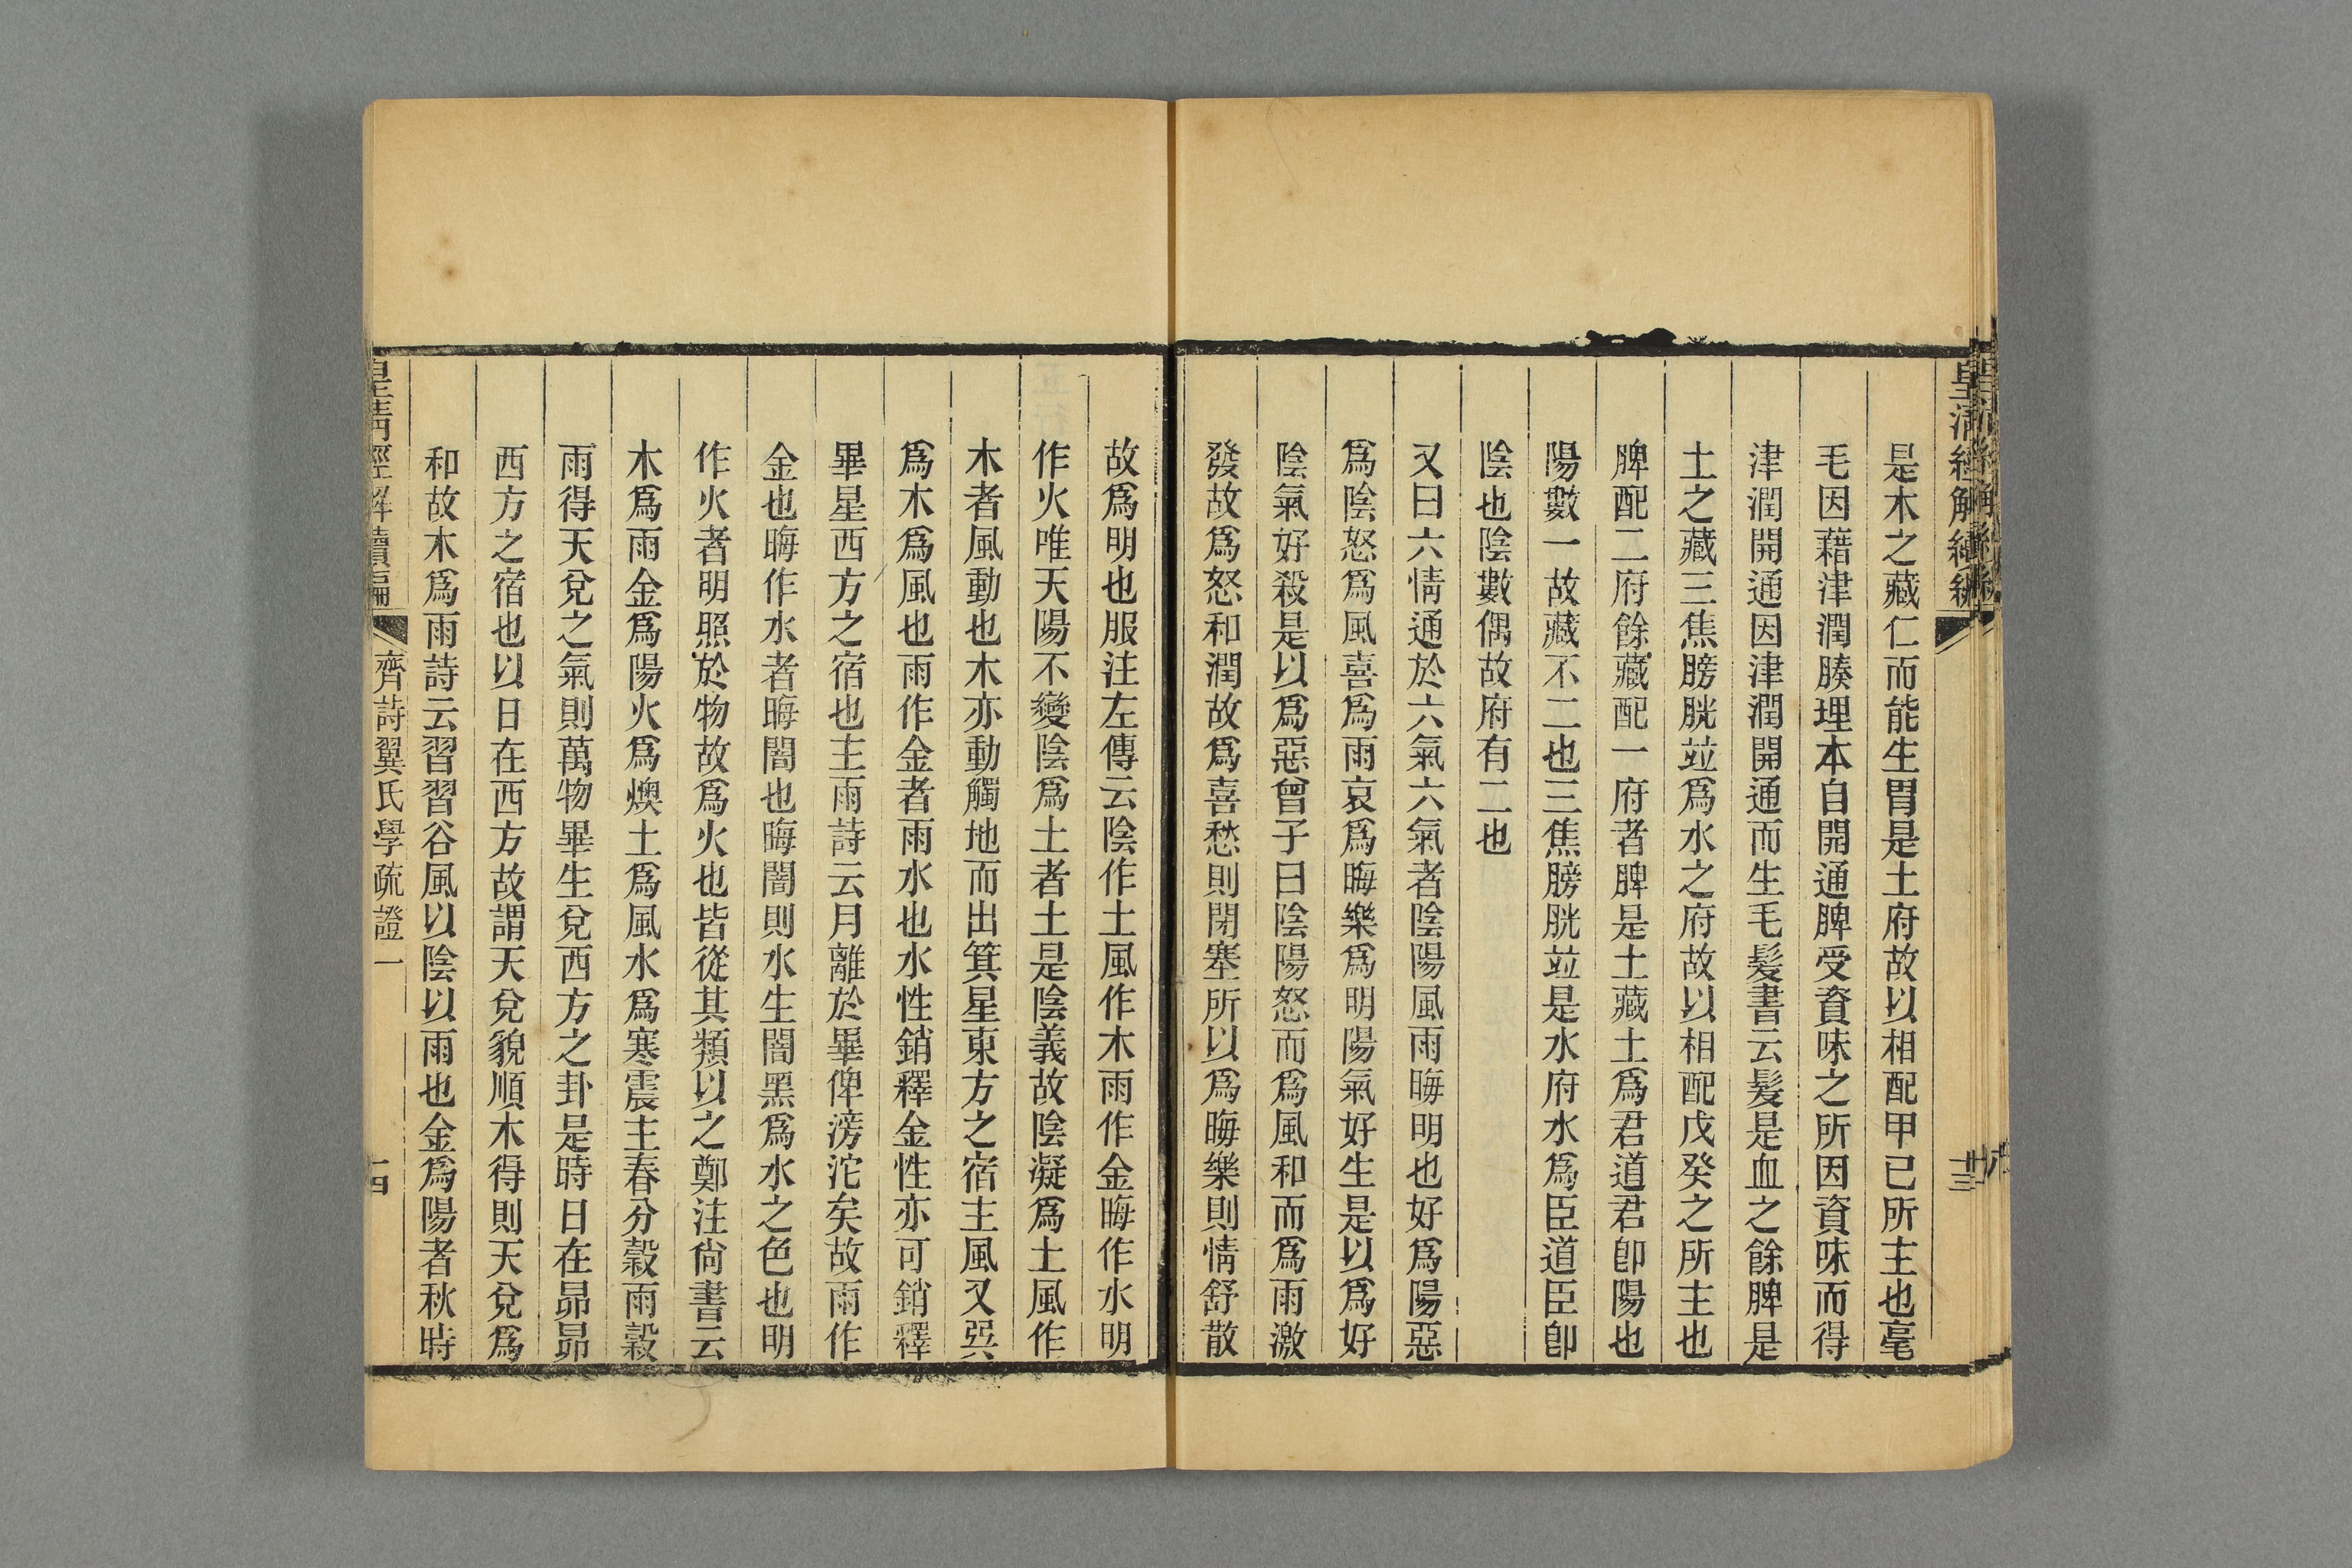 皇清經解續編
是木之藏仁而能生胃是土府故以相配甲己所主也毫
毛因藉津潤腠理本自開通脾受資味之所因資味而得
津潤開通因津潤開通而生毛髮書云髮是血之餘脾是
土之藏三焦膀胱竝爲水之府故以相配戊癸之所主也
脾配二府餘藏配一府者脾是土藏土爲君道君卽陽也
陽數一故藏不二也三焦膀胱竝是水府水爲臣道臣卽
陰也陰數偶故府有二也
又曰六情通於六氣六氣者陰陽風雨晦明也好爲陽惡
爲陰怒爲風喜爲雨哀爲晦樂爲明陽氣好生是以爲好
陰氣好殺是以爲惡曾子曰陰陽怒而爲風和而爲雨激
發故爲怒和潤故爲喜愁則閉塞所以爲晦樂則情舒散
故爲明也服注左傳云陰作土風作木雨作金晦作水明
作火唯天陽不變陰爲土者土是陰義故陰凝爲土風作
木者風動也木亦動觸地而出箕星東方之宿主風又巽
爲木爲風也雨作金者雨水也水性銷釋金性亦可銷釋
畢星西方之宿也主雨詩云月離於畢俾滂沱矣故雨作
金也晦作水者晦闇也晦闇則水生闇黑爲水之色也明
作火者明照於物故爲火也皆從其類以之鄭注尙書云
木爲雨金爲陽火爲燠土爲風水爲寒震主春分穀雨穀
雨得天兌之氣則萬物畢生兌西方之卦是時日在昴昴
西方之宿也以日在西方故謂天兌貌順木得則天兌爲
和故木爲雨詩云習習谷風以陰以雨也金爲陽者秋時
皇淸經解續編 齊詩翼氏學疏證一